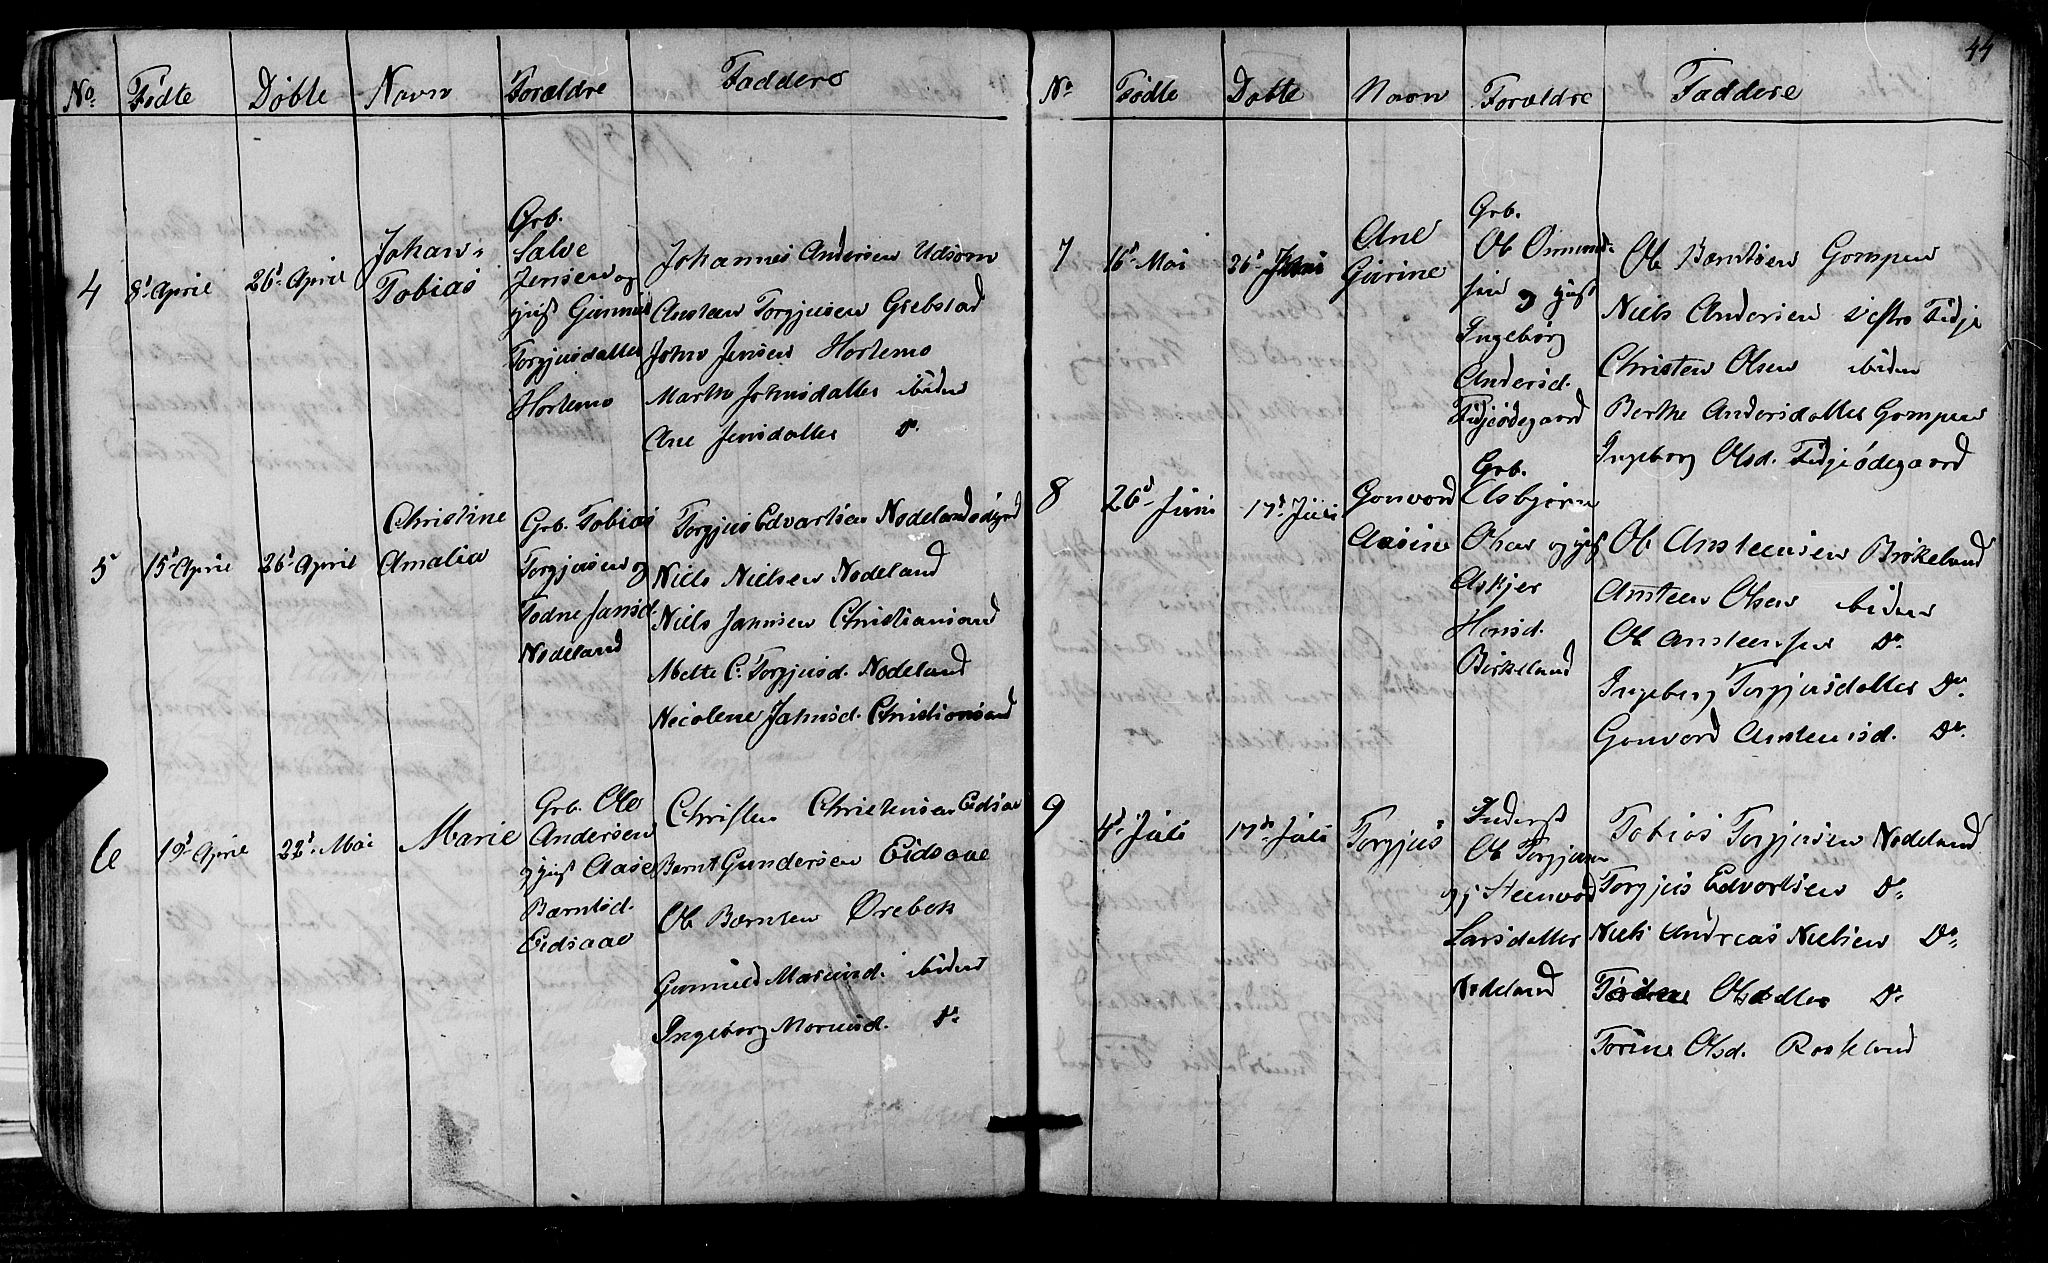 44
No. Fødte Døbte Navn Forældre Faddere
4 8d April 26d April Johan Tobias
Grb.
Salve
Jensen og
Gjust Gunnild
Torgjusdatter
Hortemo
Johannes Andersen Udsom
Ansteen Torgjusen Grebstad
John Jensen Hortemo
Marthe Johnsdatter ibiden
Ane Jensdatter Do.
5 15d April 26d April Christine Amalia
Grb. Tobias
Torgjusen og
Todne Jansd.
Nodeland
Torgjus Edvartsen Nodeland
Niels Nielsen Nodeland
Niels Jahnsen Christiansand
Mette C. Torgjusd. Nodeland
Nicolene Jahnsd. Christiansand
6 19d April 22d Mai Marie
Grb. Ole
Andersen
og Gjust Aase
Bærntsd.
Eidsaae
Christen Christensen Eidsaae
Bernt Gundersen Eidsaae
Ole Bærntsen Ørebek
Gunnild ibiden
Ingeborg Do.
No Fødte Døbte Navn Forældre Faddere
7 16d Mai 26d Juni Ane Gurine
Grb.
Ole Ommund-
sen og Gjust
Ingebørg
Andersd.
Fidjeødegaard
Ole Bærntsen Gompen
Niels Andersen Vestre Fidje
Christen Olsen ibiden
Berthe Andersdatter Gompen
Ingeborg Olsd. Fidjeødegaard
8 26d Juni 17d Juli Gonvord Aasine
Grb.
Asbjørn
Olsen og Gjust
Askjer
Hansd.
Birkeland
Ole Ansteensen Birkeland
Ansteen Olsen ibiden
Ole Ansteensen Do.
Ingeborg Torgjusdatter Do.
Gonvord Ansteensd. Do.
9 4d Juli 17de Juli Torgjus
Inderst
Ole Torgjusen
og Steenvor
Larsdatter
Nodeland
Tobias Torgjusen Nodeland
Torgjus Edvartsen Do.
Niels Andreas Nielsen Do.
Olsdatter Do.
Torine Olsd. Rookland